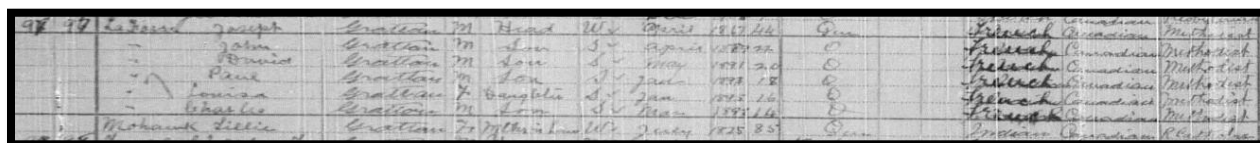 97 97 Joseph Gratton M Head W April 1867 44 Que French Canadian Methodist
" John Gratton M Son S April 1889 22 O French Canadian Methodist
" David Gratton M Son S May 1891 20 O French Canadian Methodist
" Paul Gratton M Son S Jan 1893 18 O French Canadian Methodist
" Louisa Gratton F Daughter S Jan 1895 16 O French Canadian Methodist
" Charlie Gratton M Son S Mar 1897 14 O French Canadian Methodist
Mohawk Lillie Gratton F W July 1825 85 Que Indian Canadian R Catholic